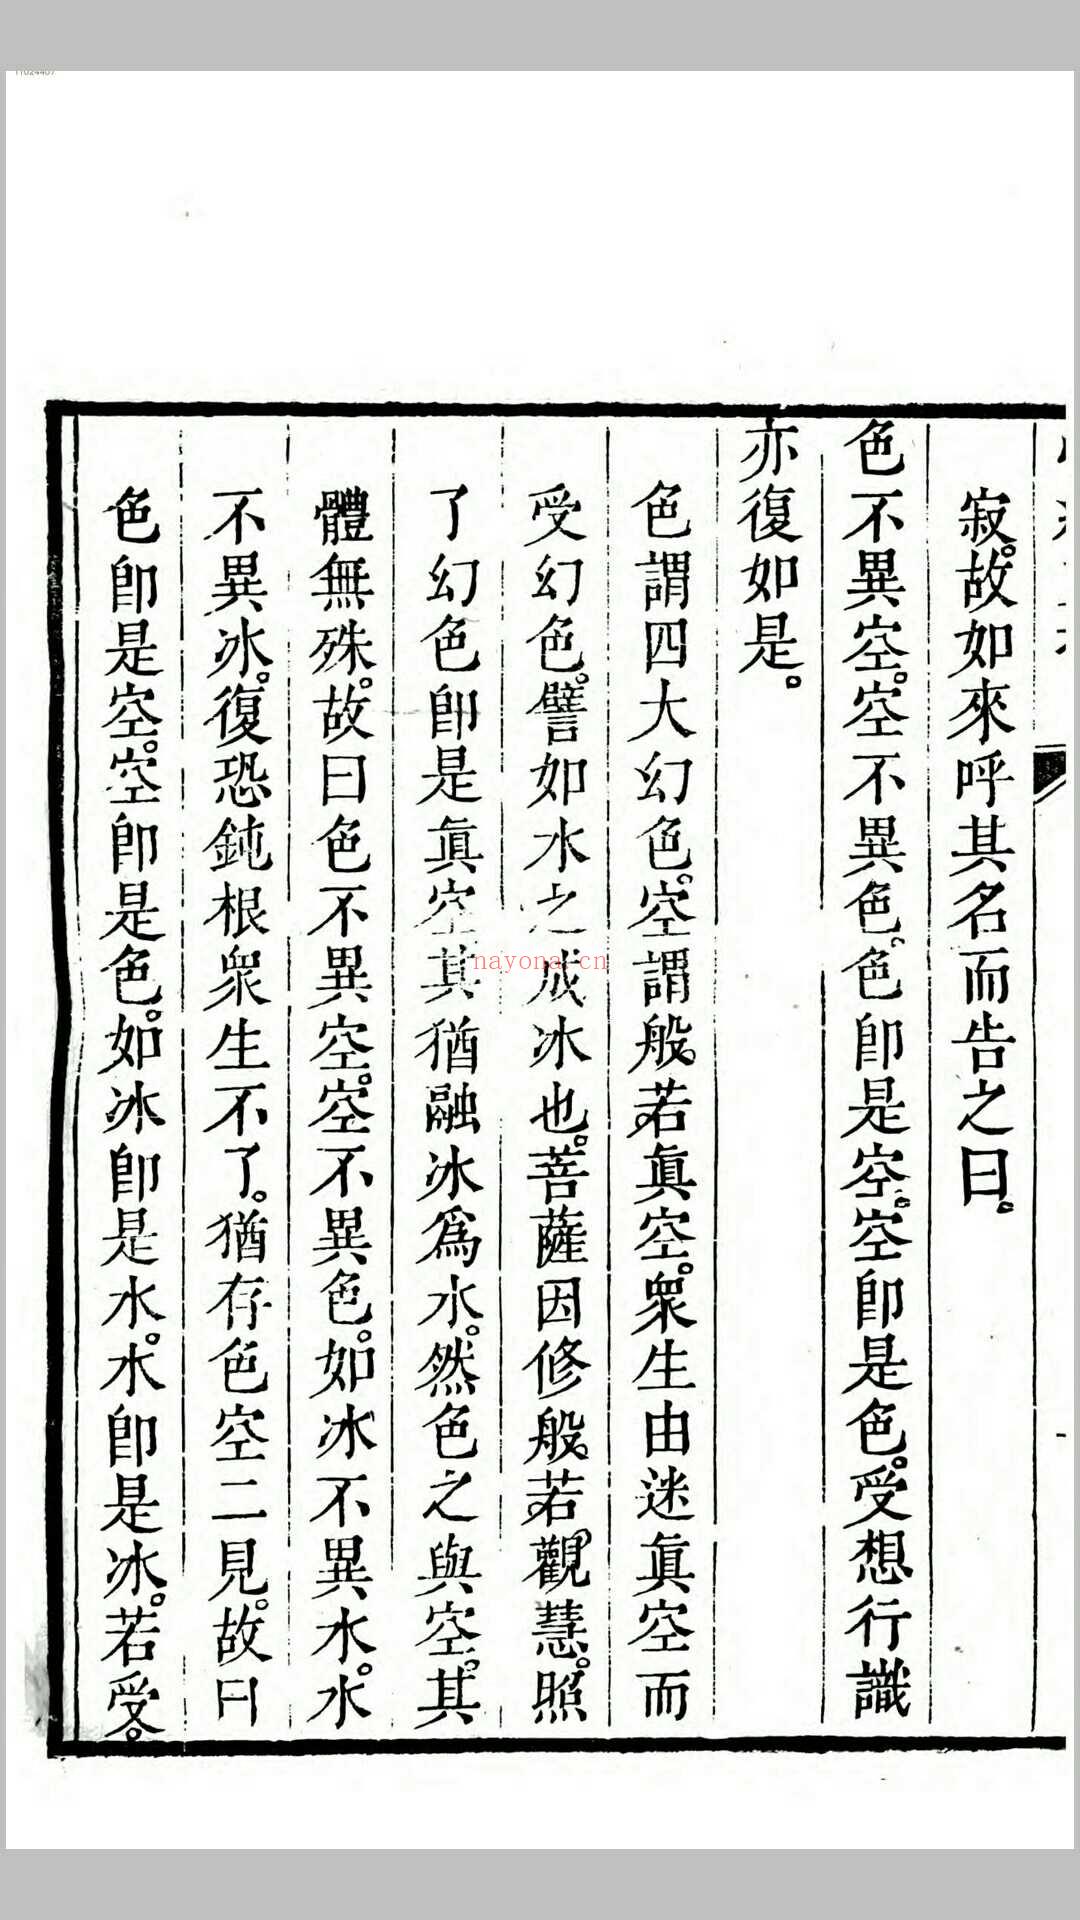 寂。故如來呼其名而告之曰。
色不異空。空不異色。色卽是空。空卽是色。受想行識
亦復如是。
色謂四大幻色。空謂般若眞空。衆生由迷眞空而
受幻色。譬如水之成冰也。菩薩因修般若觀慧。照
了幻色卽是眞空。其猶融冰爲水。然色之與空。其
體無殊。故曰色不異空。空不異色。如冰不異水。水
不異冰。復恐鈍根衆生不了。猶存色空二見。故曰
色卽是空。空卽是色。如冰卽是水。水卽是冰。若受。
nayona.cn
11024407